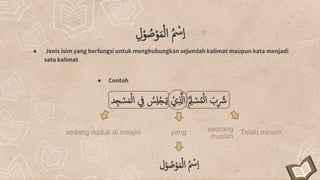 اِسْمُ الْمَوْصُوْلِ
● Jenis isim yang berfungsi untuk menghubungkan sejumlah kalimat maupun kata menjadi
satu kalimat
● Contoh
شَرِبَ الْمُسْلِمُ الَّذِيْ يَجْلِسُ فِي الْمَسْجِدِ
sedang duduk di mesjid yang seorang muslim Telah minum
اِسْمُ الْمَوْصُوْلِ